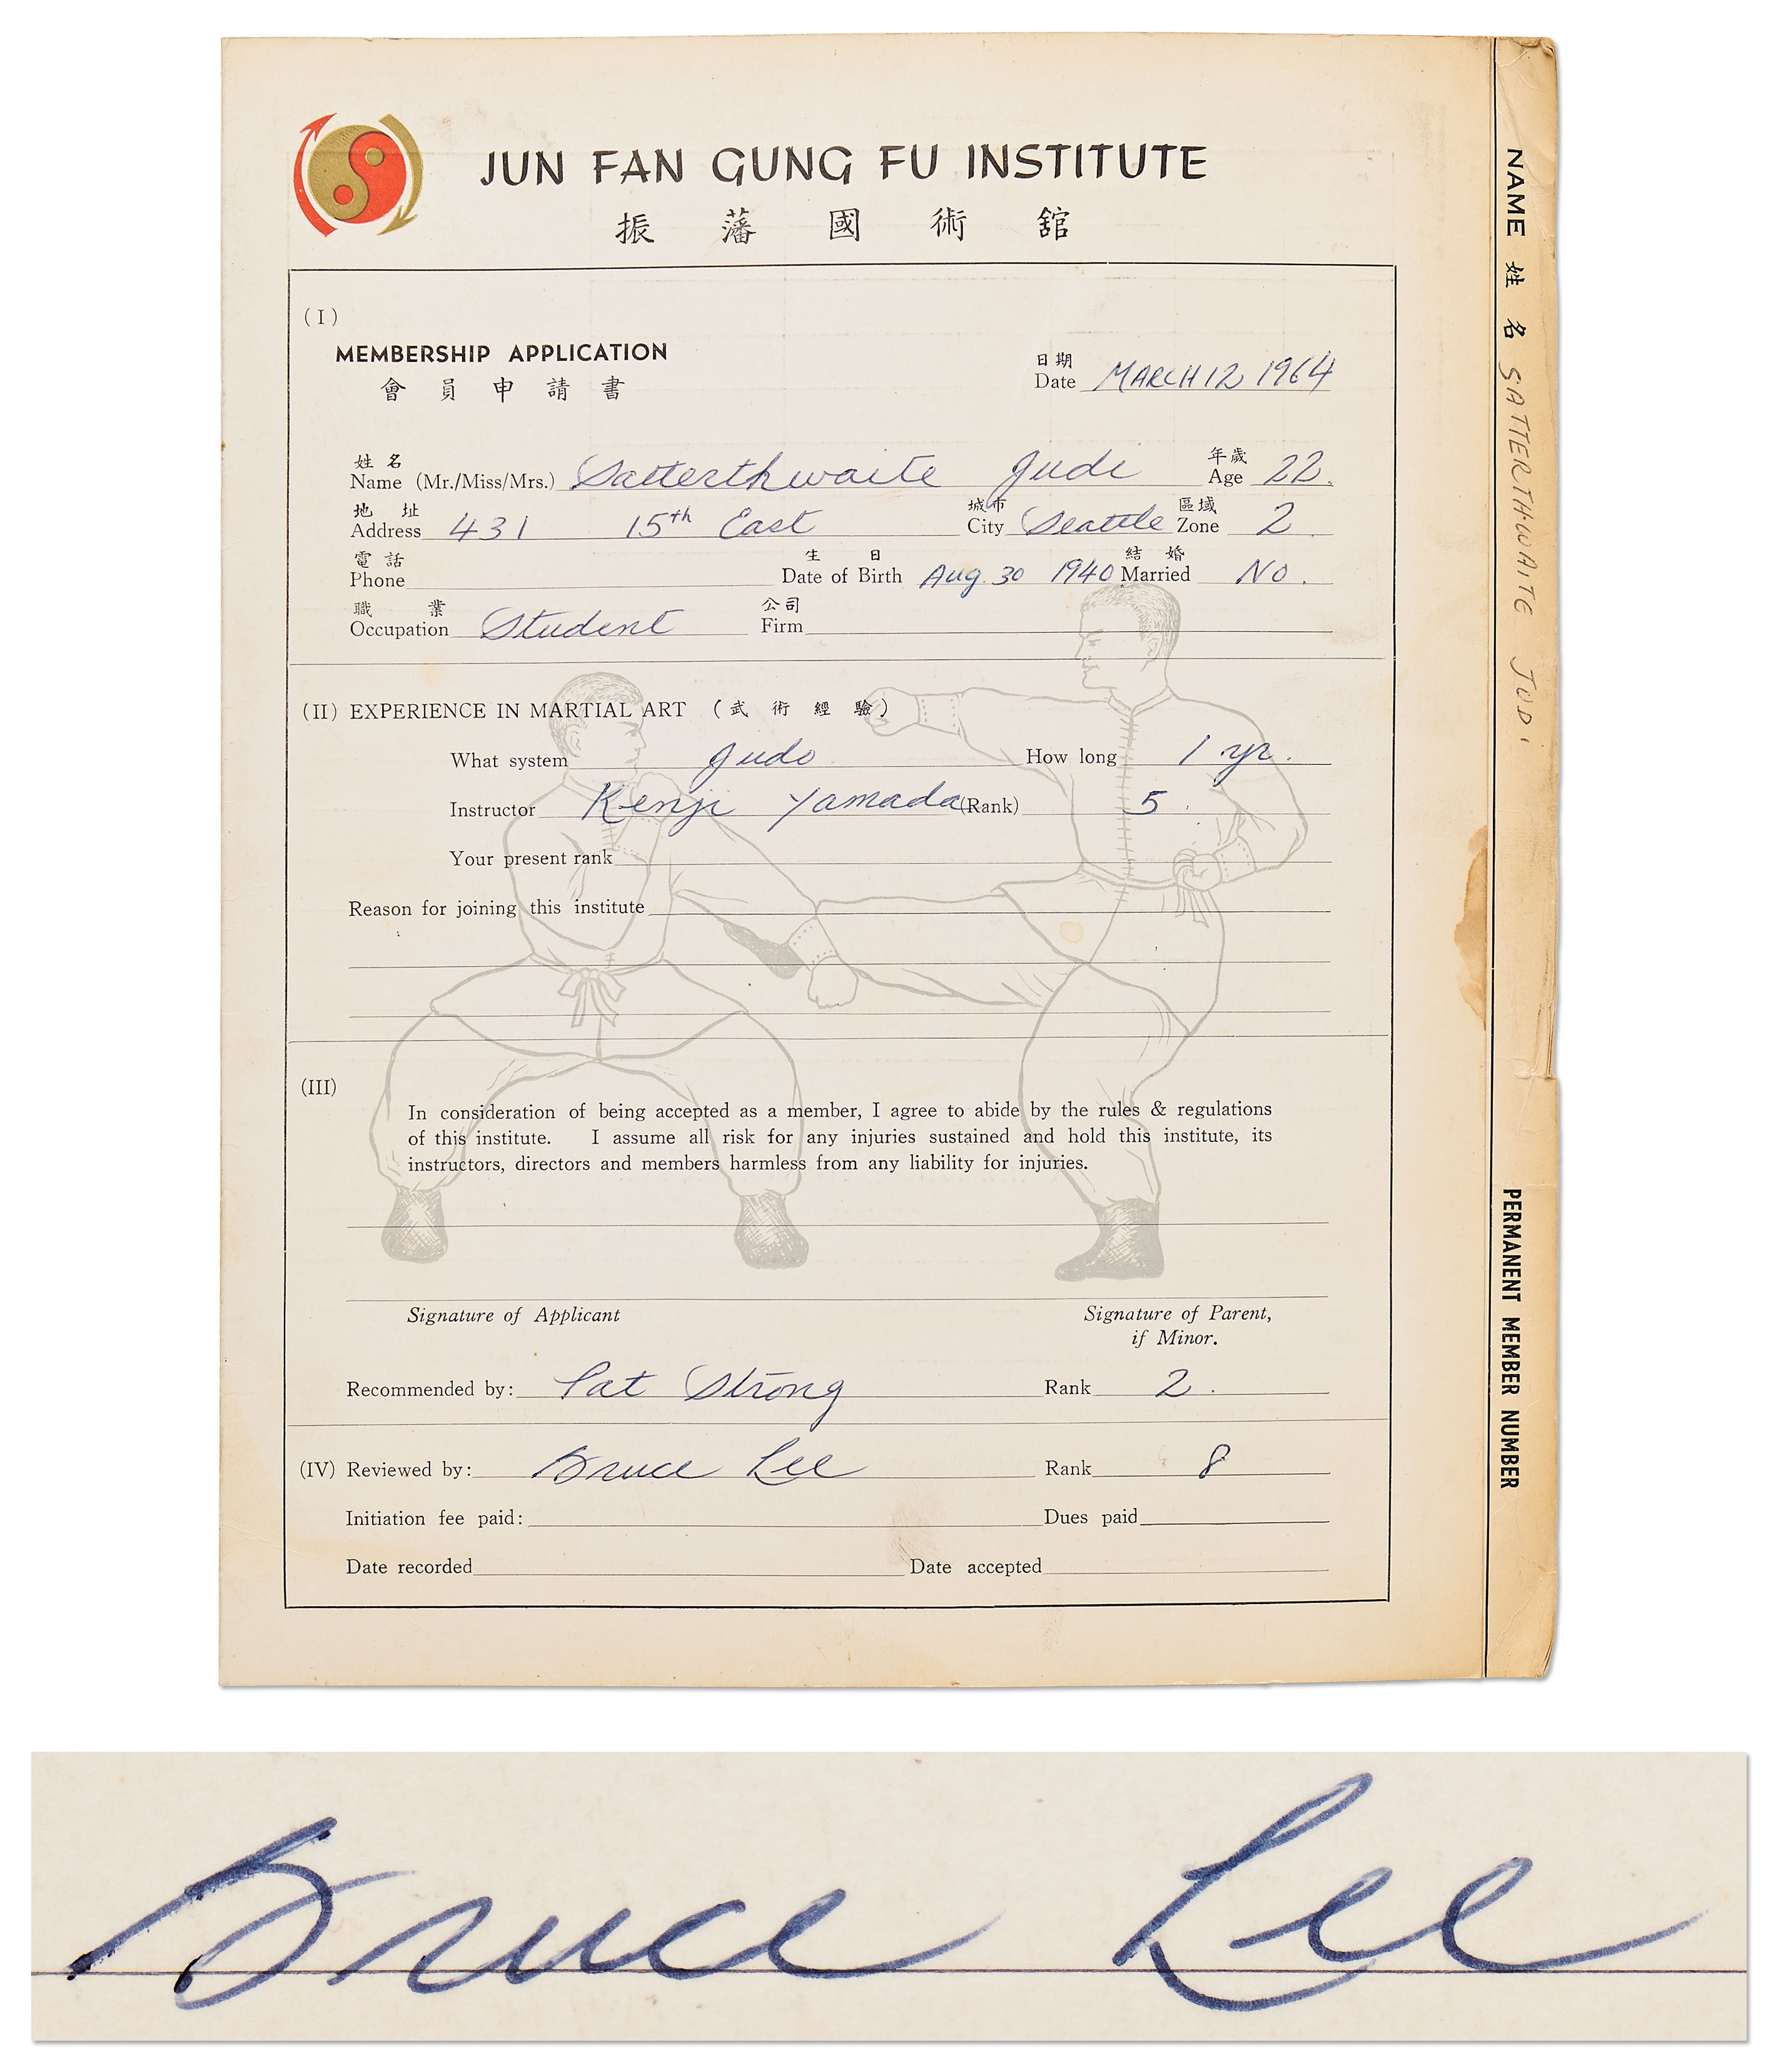 JUN FAN GUNG FU INSTITUTE
振藩國術舘
(I)
MEMBERSHIP APPLICATION
會員申請書
日期
Date MARCH 12 1964
姓名 年歲
Name (Mr./Miss/Mrs.) Satterthwaite Judi Age 22.
地址 城市 區域
Address 431 15th East City Seattle Zone 2
電話 生日 結婚
Phone Date of Birth Aug. 30 1940 Married No.
職業 公司
Occupation Student Firm
(II) EXPERIENCE IN MARTIAL ART (武術經驗)
What system Judo How long 1 yr.
Instructor Kenji Yamada (Rank) 5
Your present rank
Reason for joining this institute
(III)
In consideration of being accepted as a member, I agree to abide by the rules & regulations
of this institute. I assume all risk for any injuries sustained and hold this institute, its
instructors, directors and members harmless from any liability for injuries.
Signature of Applicant Signature of Parent,
if Minor.
Recommended by: Pat Strong Rank 2.
(IV) Reviewed by: Bruce Lee Rank 8
Initiation fee paid: Dues paid
Date recorded Date accepted
NAME 姓名 SATTERTHWAITE JUDI
PERMANENT MEMBER NUMBER
Bruce Lee